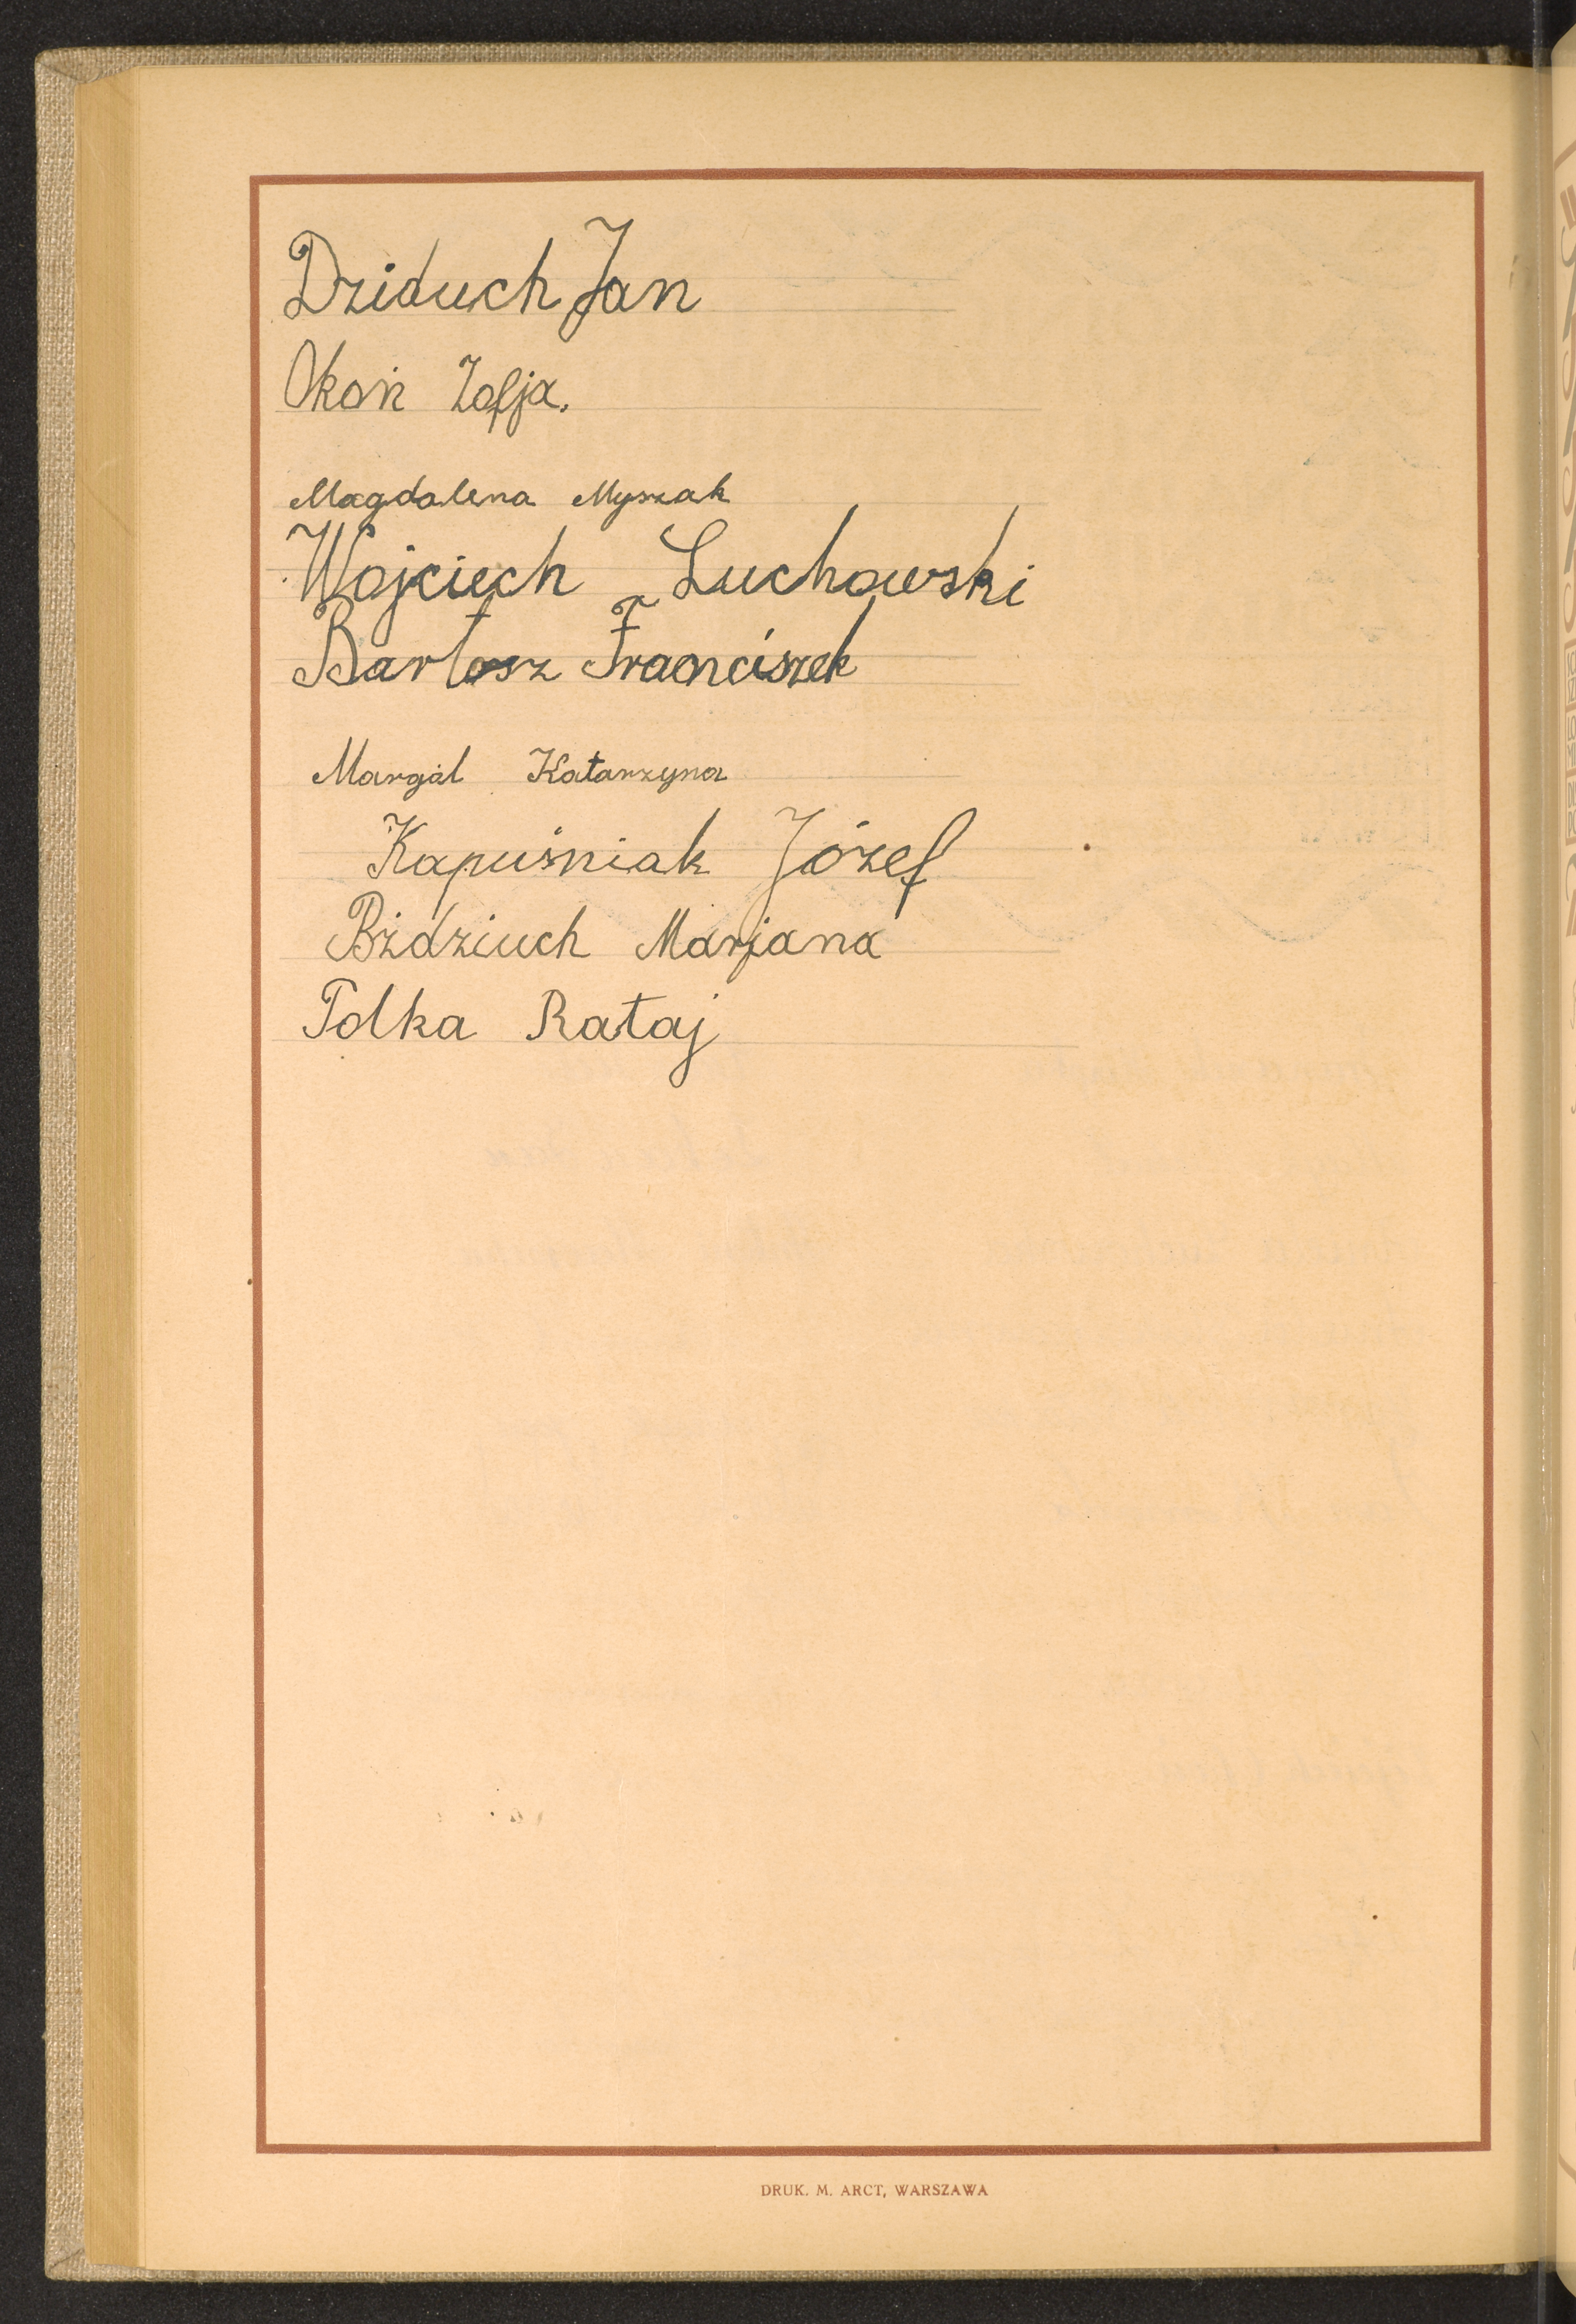 Dziduch Jan
Okoń Zofja.
Magdalena Myszak
Wojciech Luchowski
Bartosz Franciszek
Margál Katarzyna
Kapuśniak Józef
Bździuch Marjana
Polka Rataj
DRUK. M. ARCT, WARSZAWA